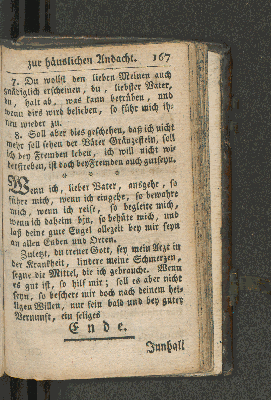 zur häuslichen Andacht. 167
7. Du wollst den lieben Meinen auch
gnädiglich erscheinen, du, liebster Vater,
du, halt ab, was kann betrüben, und
wenn dirs wird belieben, so führ mich ih-
nen wieder zu.
8. Soll aber dies geschehen, daß ich nicht
mehr soll sehen der Väter Gränzestein, soll
ich bey Fremden leben, ich will nicht wi-
derstreben, ist doch bey Fremden auch gut seyn.
* * *
Wenn ich, lieber Vater, ausgehe, so
führe mich, wenn ich eingehe, so bewahre
mich, wenn ich reise, so begleite mich,
wenn ich daheim bin, so behüte mich, und
laß deine gute Engel allezeit bey mir seyn
an allen Enden und Orten.
Zuletzt, du treuer Gott, sey mein Arzt in
der Krankheit, lindere meine Schmerzen,
segne die Mittel, die ich gebrauche. Wenn
es gut ist, so hilf mir; soll es aber nicht
seyn, so beschere mir doch nach deinem hei-
ligen Willen, nur fein bald und bey guter
Vernunft, ein seliges
Ende.
Innhalt